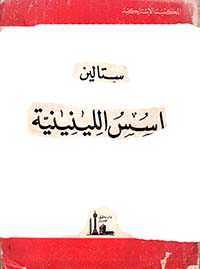 المكتبة الاشتراكية
ستالين
اسس اللينينية